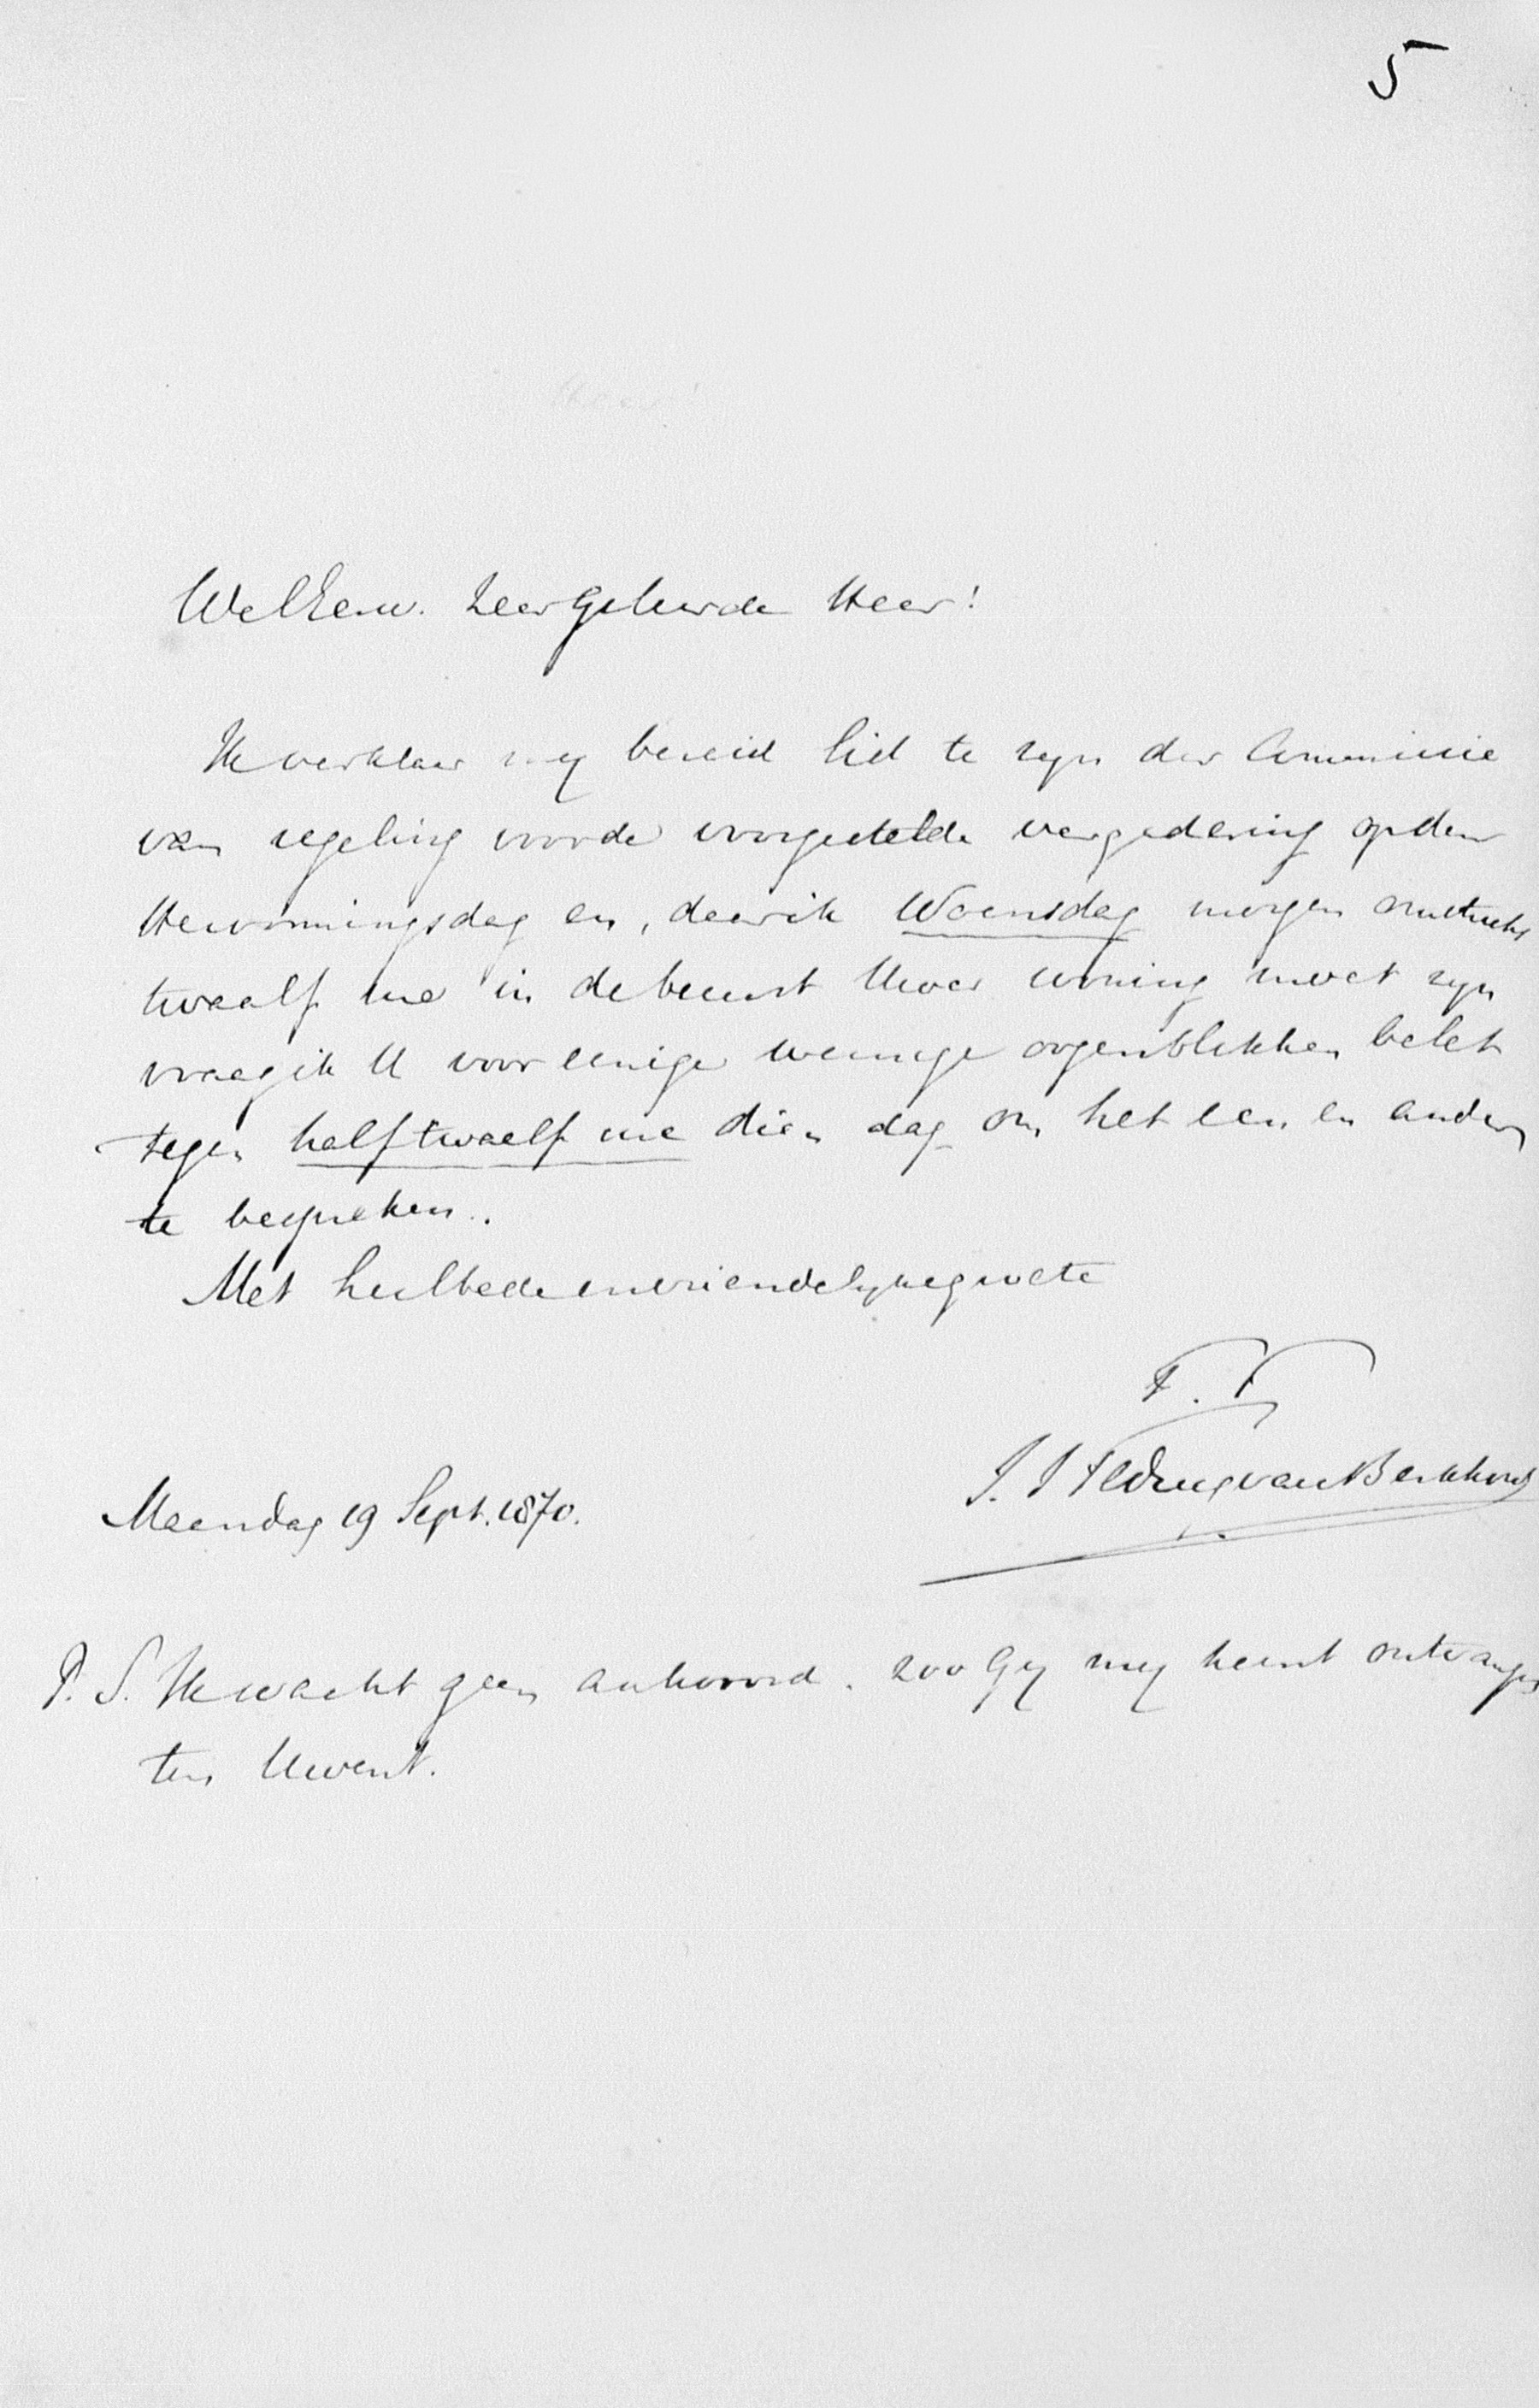 5
WelEerw. zeer Geleerde Heer!
Ik verklaar my bereid lid te zyn der Commissie
van regeling voor de voorgestelde vergadering op den
Hervormingsdag en, daar ik Woensdag morgen omstreeks
twaalf ure in de buurt Uwer woning moet zyn
vraag ik U voor eenige weinige oogenblikken belet
tegen half twaalf ure dien dag om het een en ander
te bespreken.
Met heilbede en vriendelyke groete
T. T.
van Berkhout
Maandag 19 Sept. 1870.
P. S. Ik wacht geen antwoord. zoo Gy my kunt ontvangen
ten Uwent.